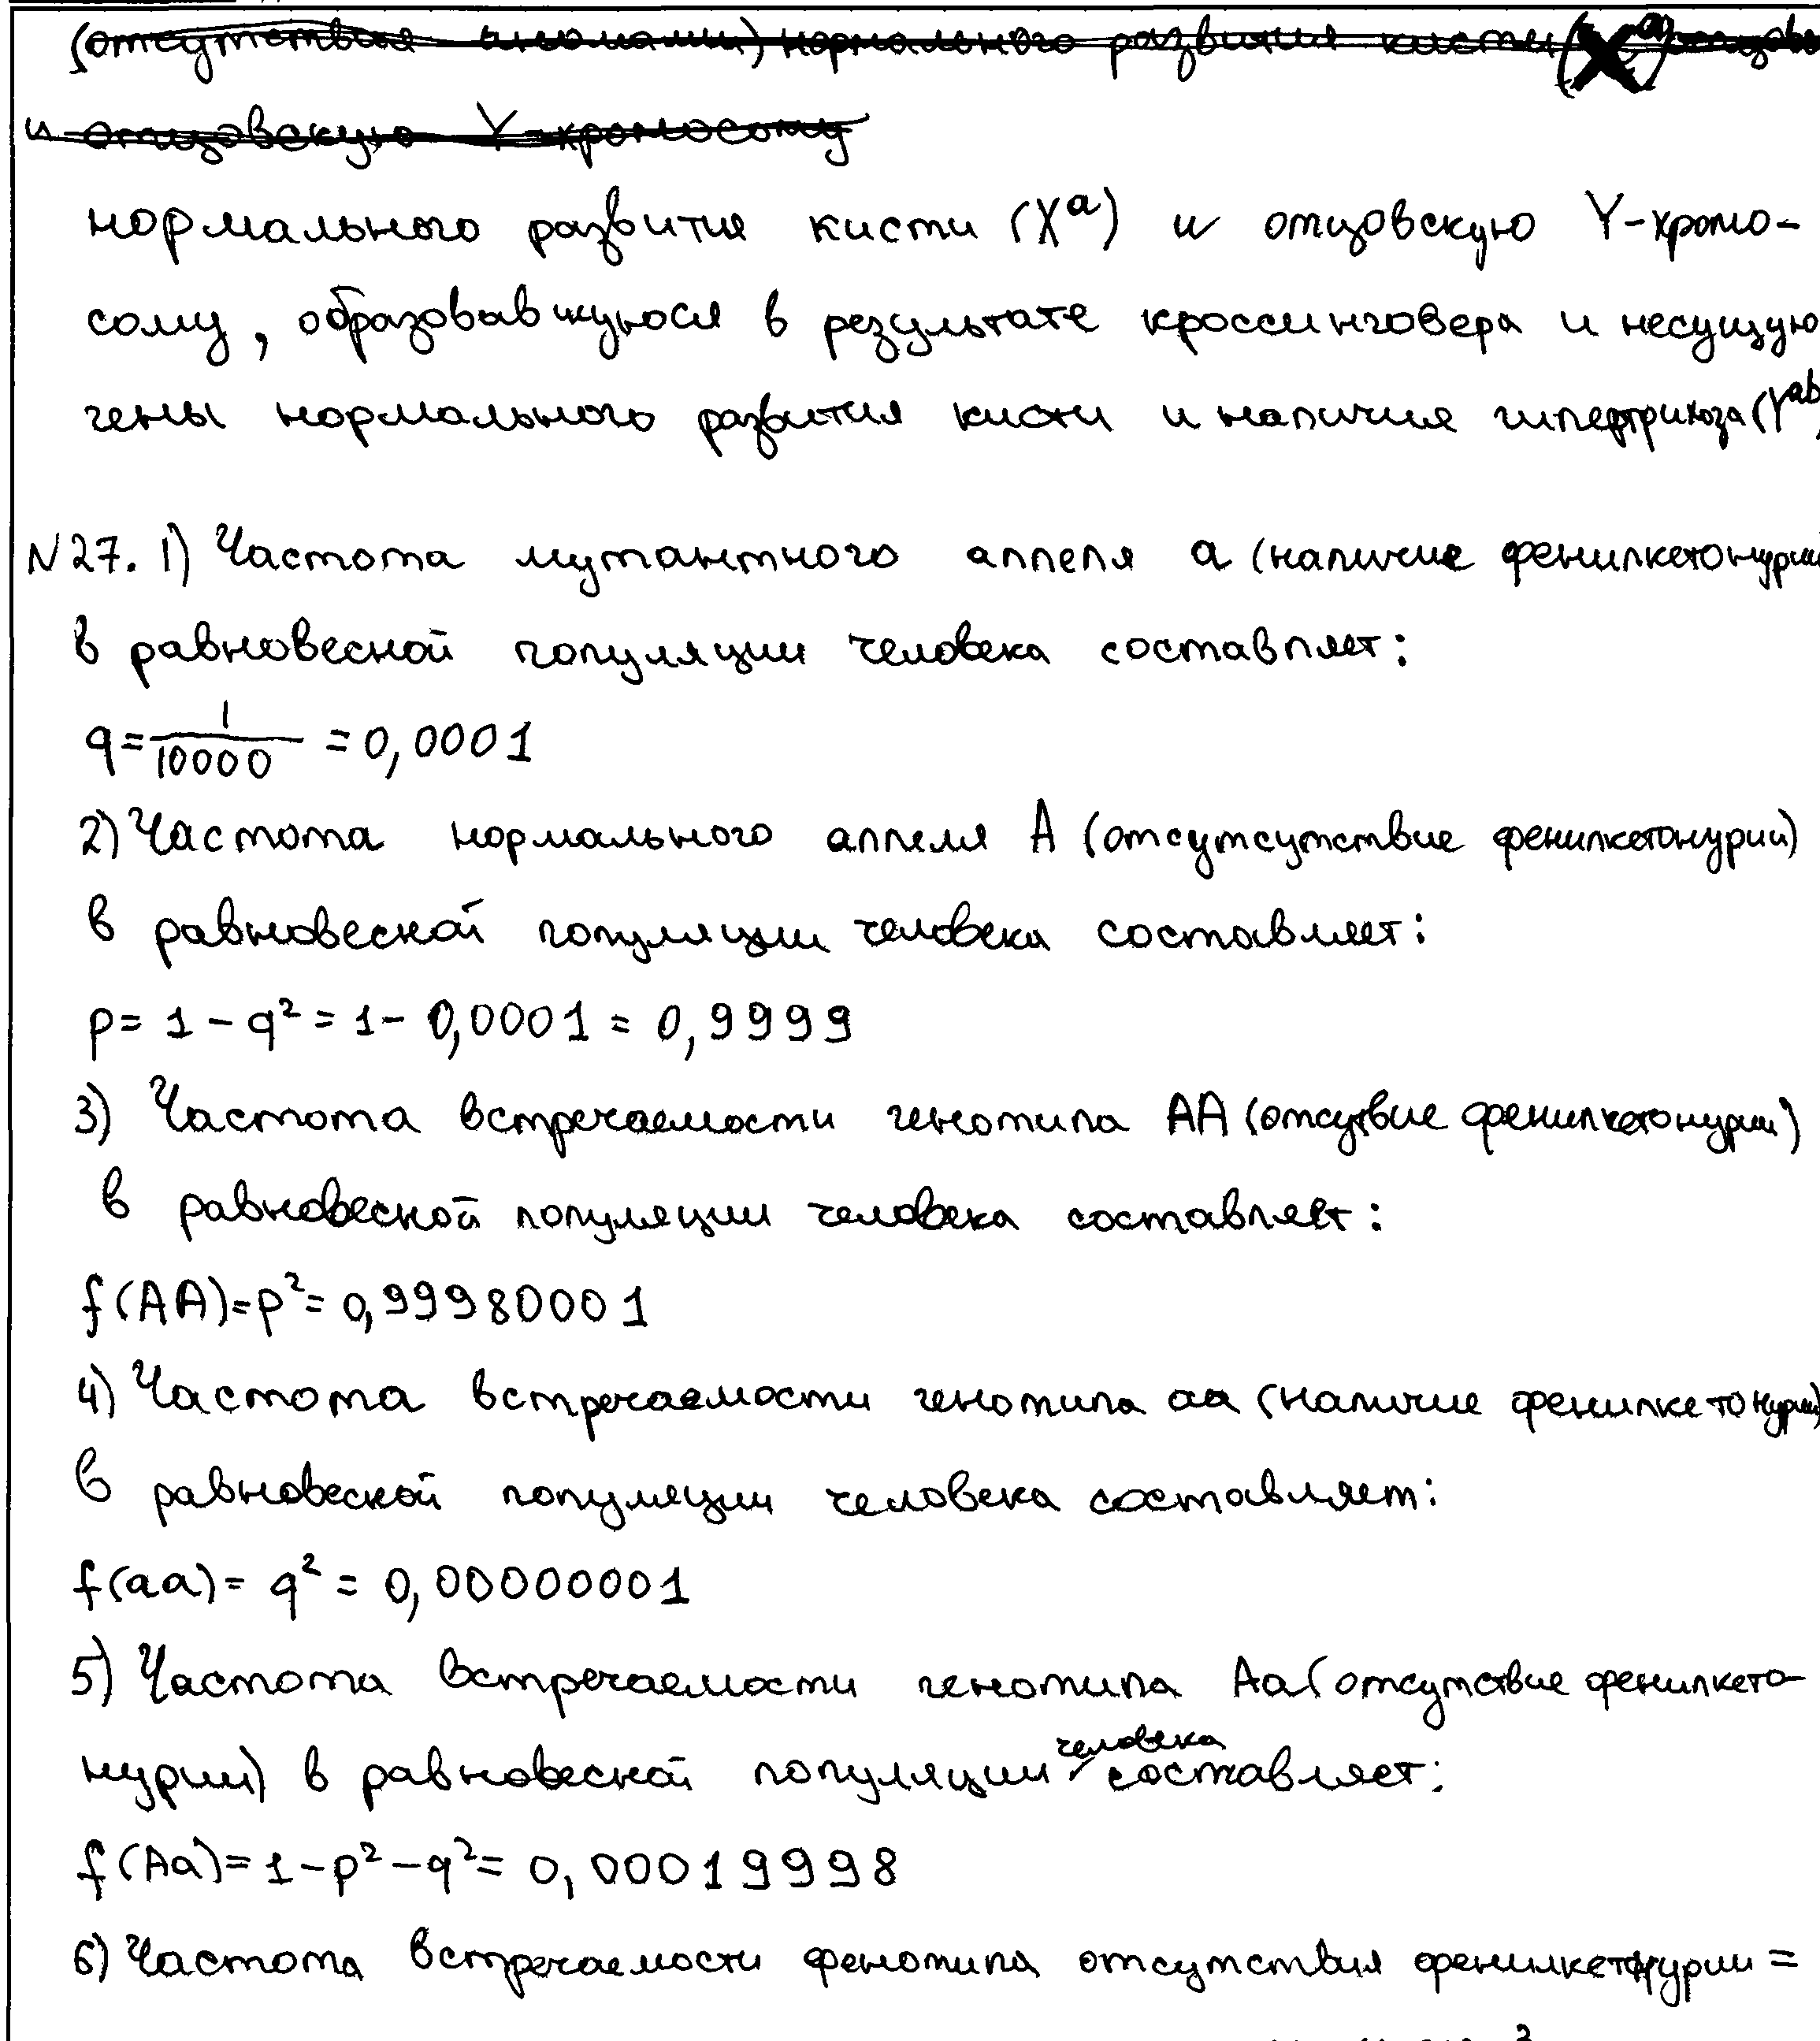 (отсутствия аномалии) нормального развития кисти (Xᵃ)
и отцовскую Y-хромосому
нормального развития кисти (Xᵃ) и отцовскую Y-хромо-
сому, образовавшуюся в результате кроссинговера и несущую
гены нормального развития кисти и наличия гипертрихоза (Yᵃᵇ
N27. 1) Частота мутантного аллеля a (наличие фенилкетонурии
в равновесной популяции человека составляет:
q = 1/10000 = 0,0001
2) Частота нормального аллеля A (отсутсутствие фенилкетонурии)
в равновесной популяции человека составляет:
p = 1 - q² = 1 - 0,0001 = 0,9999
3) Частота встречаемости генотипа AA (отсутвие фенилкетонурии)
в равновесной популяции человека составляет:
f(AA) = p² = 0,99980001
4) Частота встречаемости генотипа aa (наличие фенилкетонурии)
в равновесной популяции человека составляет:
f(aa) = q² = 0,00000001
5) Частота встречаемости генотипа Aa (отсутствие фенилкето-
нурии) в равновесной популяции человека составляет:
f(Aa) = 1 - p² - q² = 0,00019998
6) Частота встречаемости фенотипа отсутствия фенилкетонурии =